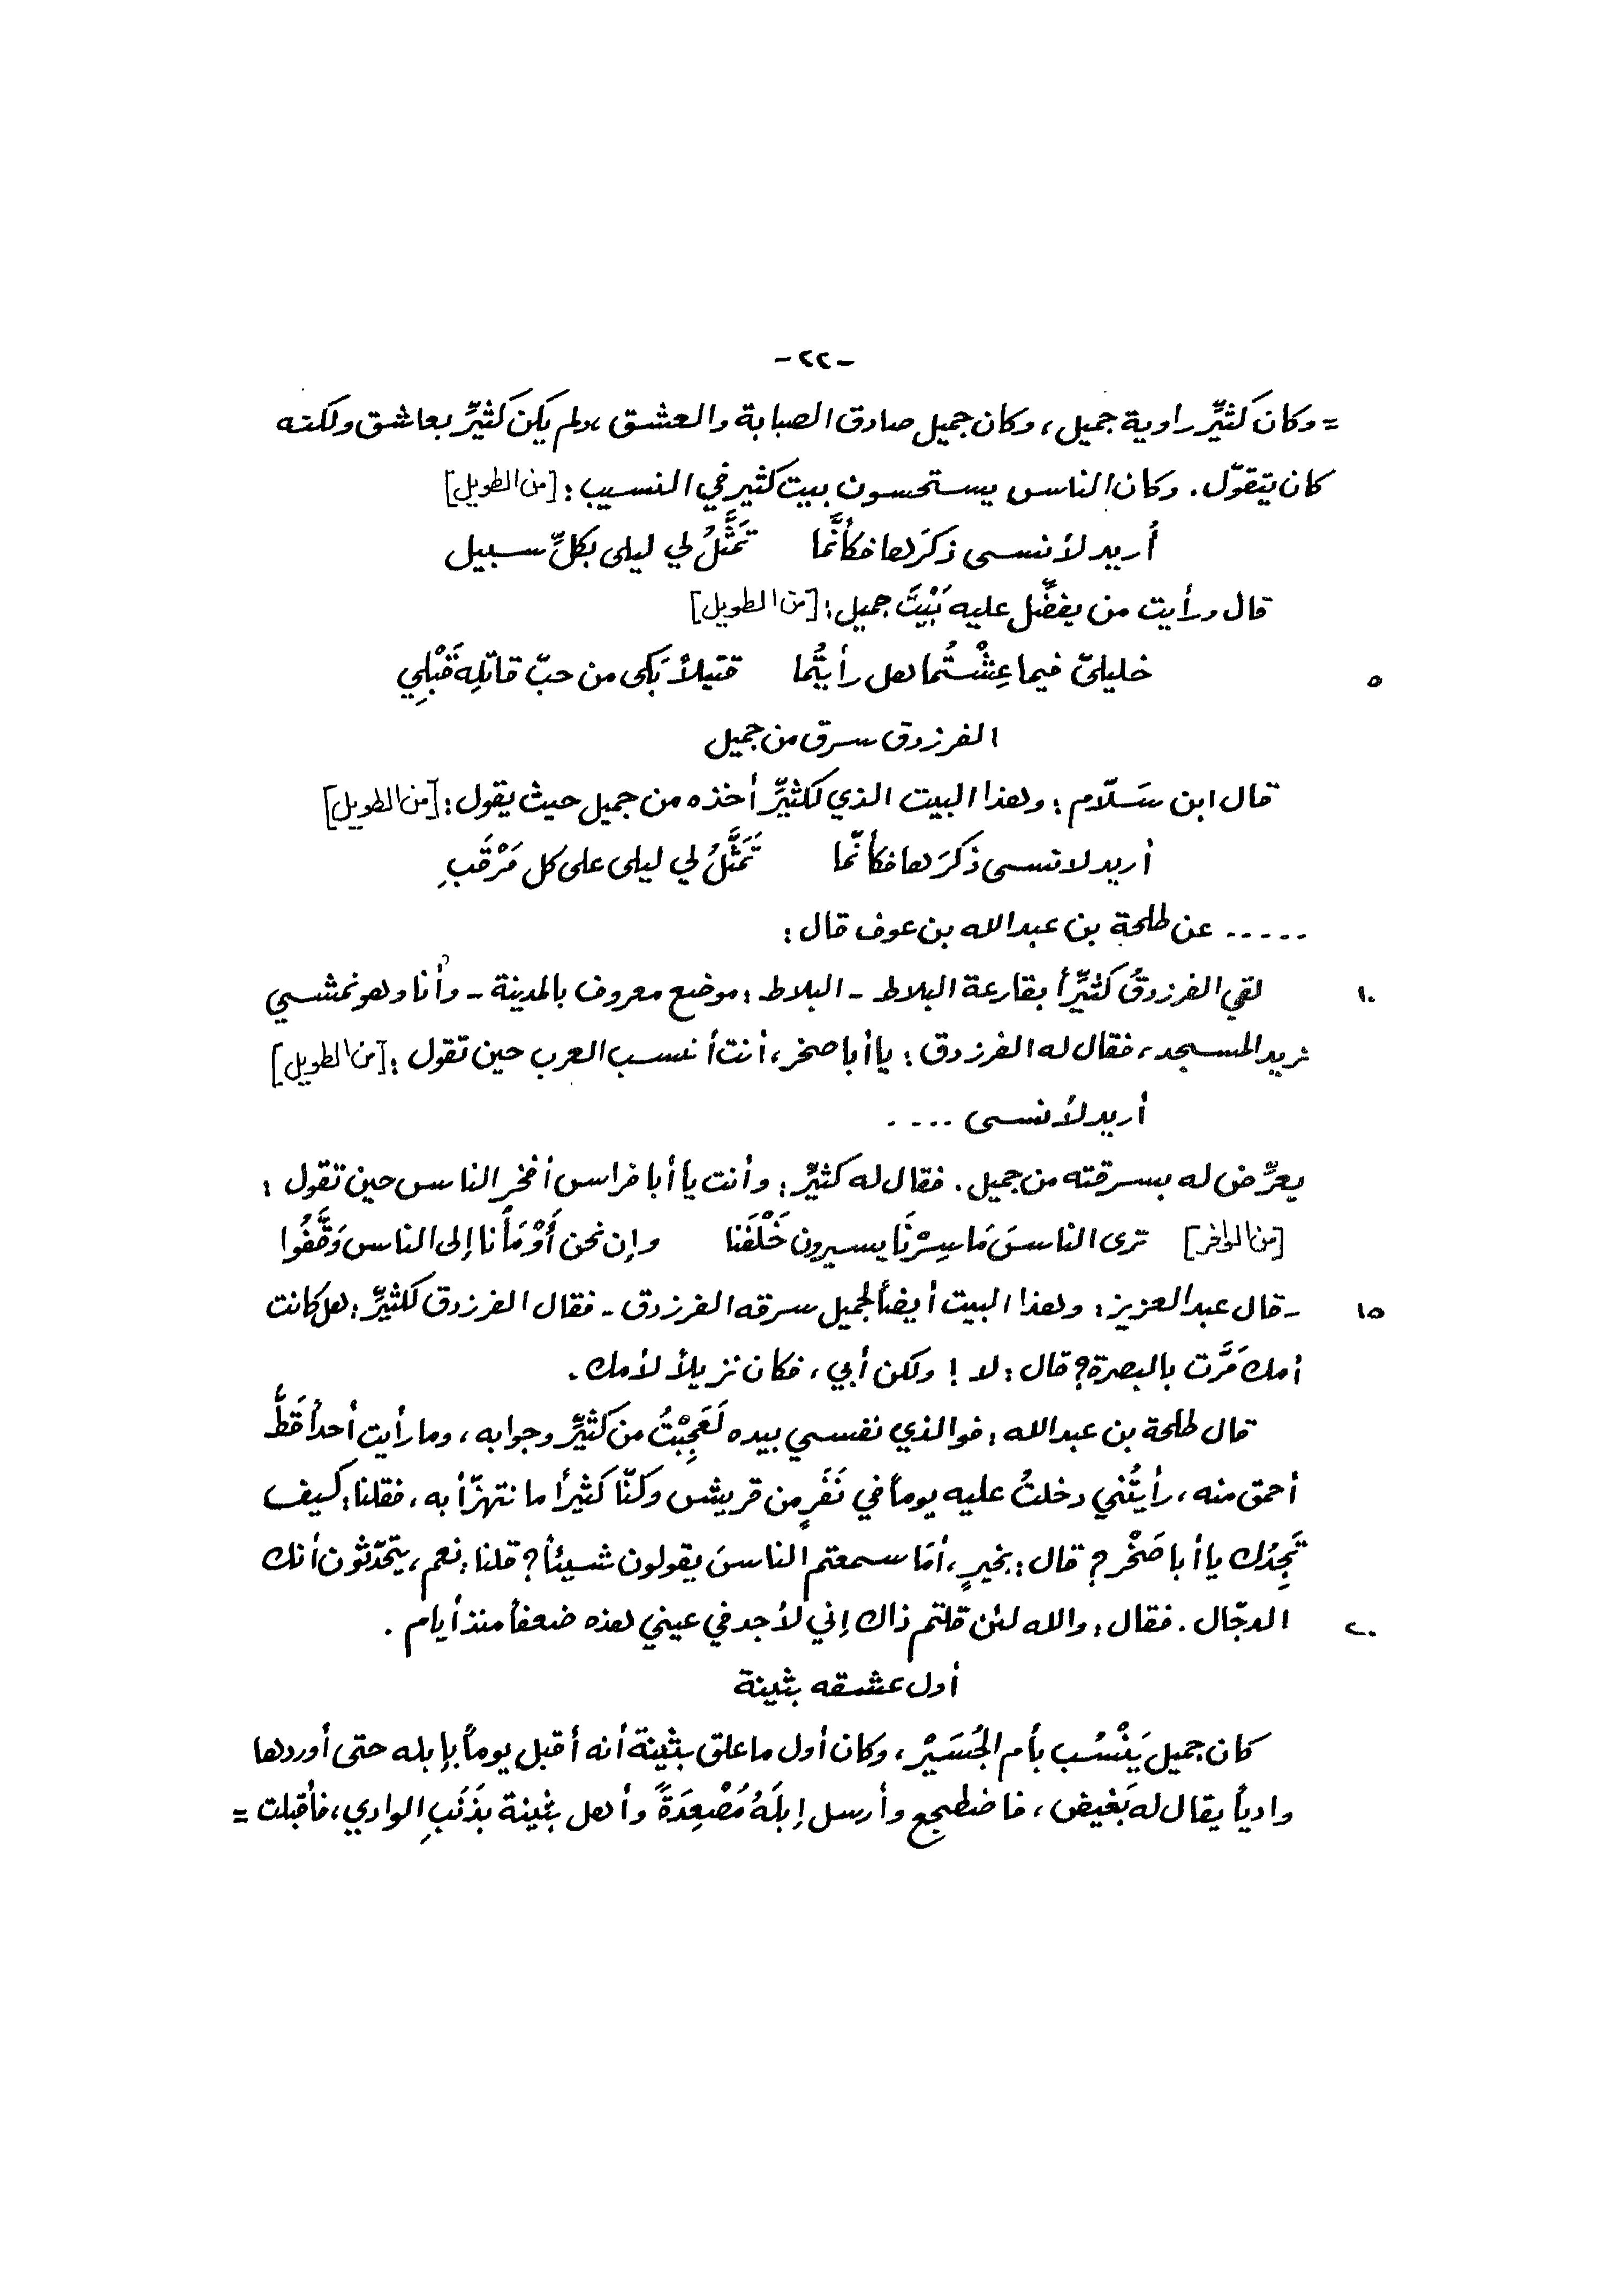 -٢٢-
= وكان كثيِّر راوية جميل، وكان جميل صادق الصبابة والعشق، ولم يكن كثيِّر بعاشق ولكنه
كان يتقوّل. وكان الناس يستحسنون بيت كثير في النسيب: [من الطويل]
أُريد لأنسى ذكرَها فكأنَّما    تَمَثَّلُ لي ليلى بكلِّ سبيل
قال ورأيت من يفضِّل عليه بَيْتَ جميل: [من الطويل]
٥ خليليّ فيما عِشْتُما هل رأيتُما    قتيلاً بَكى من حبّ قاتلِه قَبْلِي
الفرزدق سرق من جميل
قال ابن سَلّام: وهذا البيت الذي لكثيِّر أخذه من جميل حيث يقول: [من الطويل]
أريد لانسى ذكرَها فكأنّما    تَمَثَّلُ لي ليلى على كل مَرْقَبِ
..... عن طلحة بن عبدالله بن عوف قال:
١٠ لقي الفرزدقُ كثيِّراً بقارعة البلاط - البلاط: موضع معروف بالمدينة - وأنا وهو نمشي
نريد المسجد، فقال له الفرزدق: يا أبا صخر، أنت أنسب العرب حين تقول: [من الطويل]
أريد لأنسى ....
يعرِّض له بسرقته من جميل. فقال له كثيِّر: وأنت يا أبا فراس أفخر الناس حين تقول:
[من الوافر] ترى الناسَ مَا سِرْنَا يسيرون خَلْفَنا    وإن نحن أَوْمَأْنا إلى الناس وَقَّفُوا
١٥ - قال عبدالعزيز: وهذا البيت أيضاً لجميل سرقه الفرزدق - فقال الفرزدق لكثيِّر: هل كانت
أمك مَرَّت بالبصرة؟ قال: لا! ولكن أبي، فكان نزيلاً لأمك.
قال طلحة بن عبدالله: فوالذي نفسي بيده لَعَجِبْتُ من كثيِّر وجوابه، وما رأيت أحداً قَطُّ
أحمق منه، رأيتُني دخلتُ عليه يوماً في نَفَرٍ من قريش وكنّا كثيراً ما نتهزّأ به، فقلنا: كيف
تَجِدُك يا أبا صَخْر؟ قال: بخيرٍ، أمَا سمعتم الناسَ يقولون شيئاً؟ قلنا: نعم، يتحدّثون أنك
٢٠ الدجّال. فقال: والله لئن قلتم ذاك إني لأجد في عيني هذه ضعفاً منذ أيام.
أول عشقه بثينة
كان جميل يَنْسُب بأم الجُسَيْر، وكان أول ما علق بثينة أنه أقبل يوماً بإبله حتى أوردها
وادياً يقال له بَغيض، فاضطجع وأرسل إبلَهُ مُصْعِدَةً وأهل بثينة بذَنَبِ الوادي، فأقبلت =